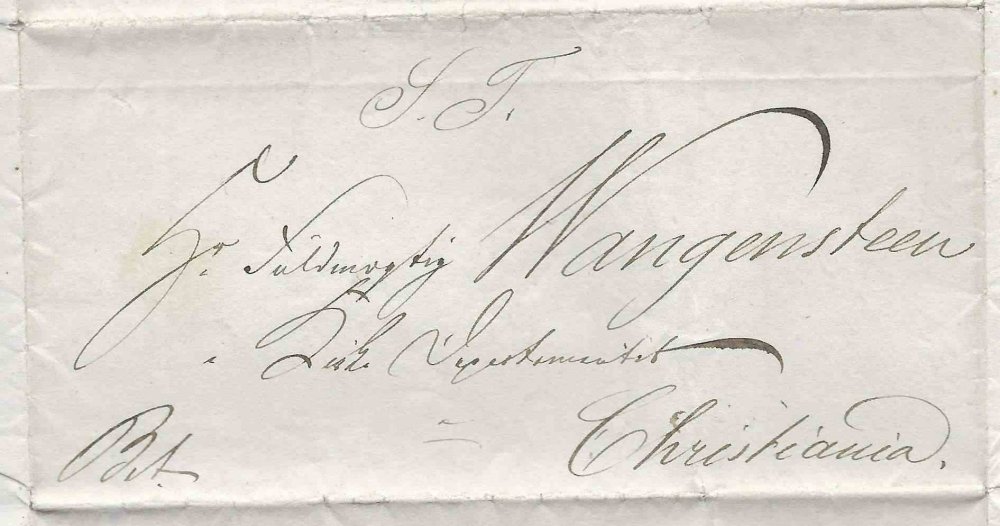 S. T.
Hr. Fuldmægtig Wangensteen
i Kirke Departementet
Christiania.
Bet.